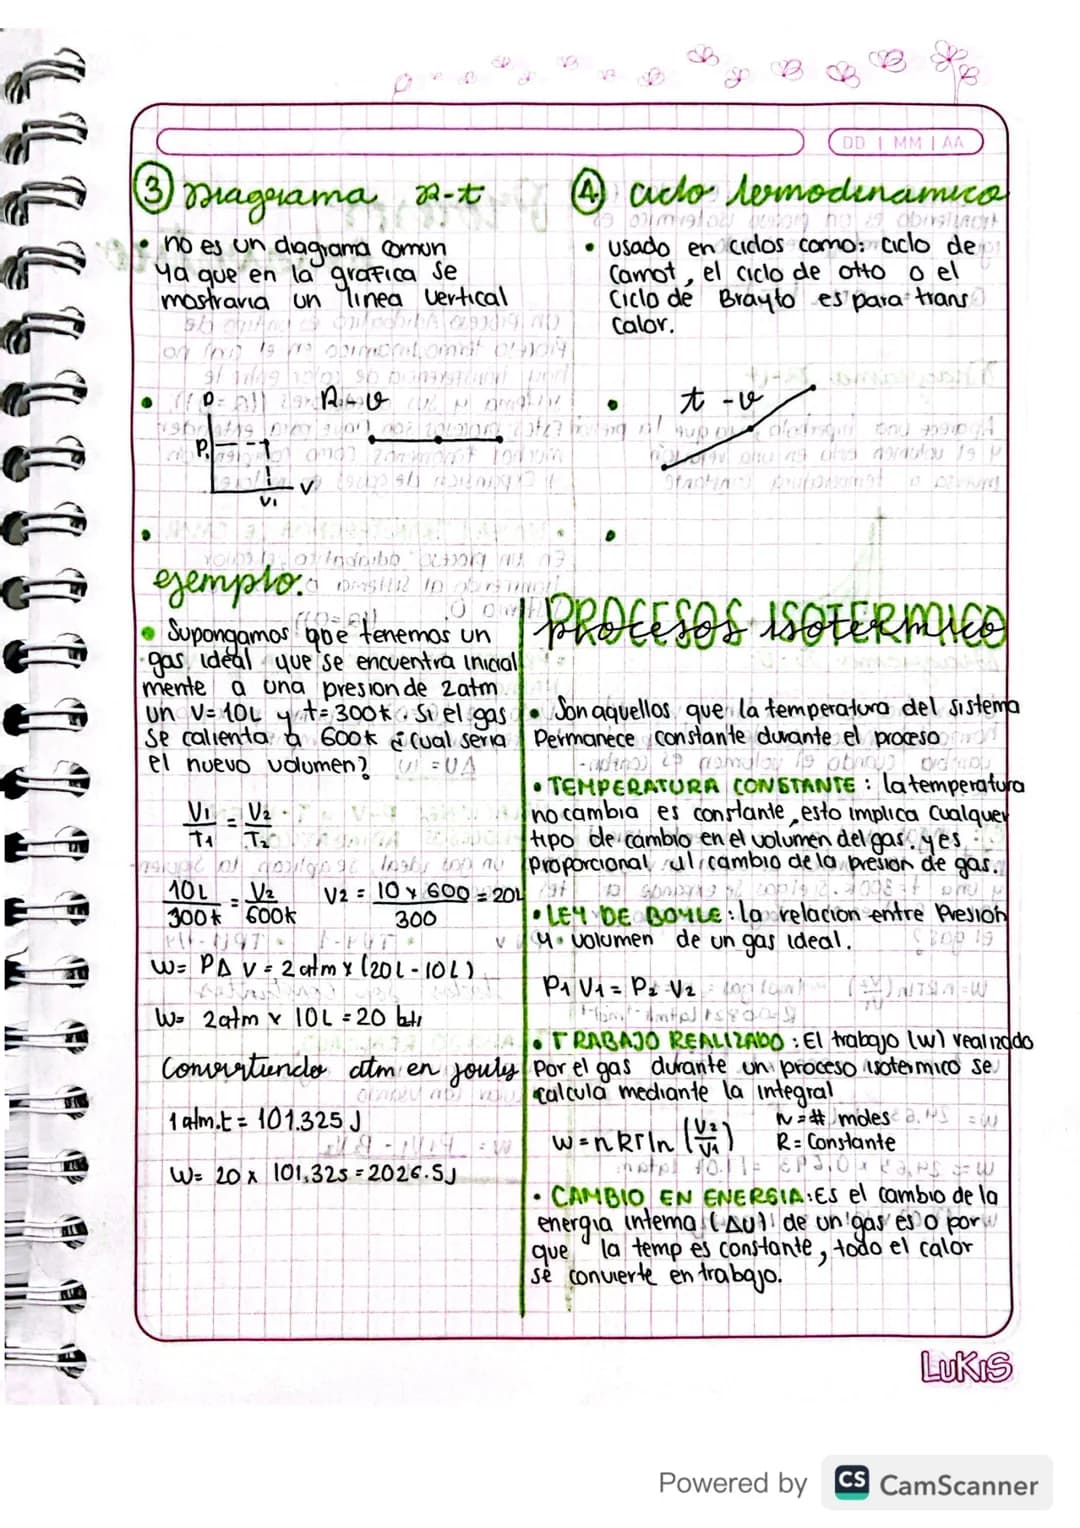 DD | MM | AA
③ Diagrama P-t
• no es un diagrama comun
ya que en la grafica se
mostraria un linea vertical
• P-v
P
P1
V
V1
•
④ ciclo termodinamico
• usado en ciclos como: ciclo de
Carnot, el ciclo de otto o el
Ciclo de Brayto es para trans
Calor.
• t-v
•
ejemplo:
• Supongamos que tenemos un
gas ideal que se encuentra inicial
mente a una presion de 2atm
un V=10L y t=300k. Si el gas
se calienta a 600k ¿cual seria
el nuevo volumen?
V1/T1 = V2/T2
10L/300k = V2/600k V2 = 10 x 600/300 = 20L
W= PΔV = 2atm x (20L-10L)
W= 2atm x 10L = 20
Convirtiendo atm en jouls
1 atm.L = 101.325 J
W= 20 x 101.325 = 2026.5J
PROCESOS ISOTERMICO
• Son aquellos que la temperatura del sistema
Permanece constante durante el proceso
• TEMPERATURA CONSTANTE: la temperatura
no cambia es constante, esto implica cualquer
tipo de cambio en el volumen del gas. y es
proporcional al cambio de la presion de gas.
• LEY DE BOYLE: la relacion entre Presion
y volumen de un gas ideal.
P1 V1 = P2 V2
• TRABAJO REALIZADO: El trabajo (w) realizado
Por el gas durante un proceso isotermico se
calcula mediante la integral
w = nRTln (V2/V1) n = # moles
R = Constante
• CAMBIO EN ENERGIA: Es el cambio de la
energia interna (ΔU) de un gas es 0 por
que la temp es constante, todo el calor
se convierte en trabajo.
LUKIS
Powered by CS CamScanner